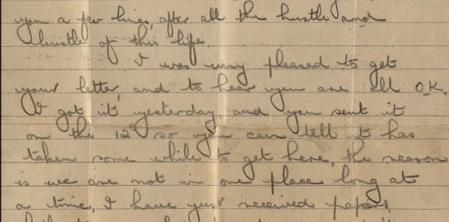 you a few lines, after all the hustle and
bustle of this life.
I was very pleased to get
your letter, and to hear you are all O.K.
I got it yesterday, and you sent it
on the 12th so you can tell it has
taken some while to get here, the reason
is we are not in one place long at
a time, I have just received papers,